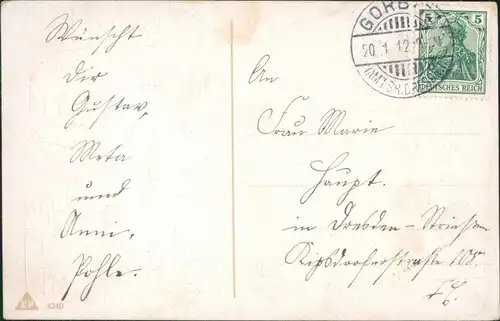 Wünscht
Dir
Gustav,
Meta
und
Anni,
Pohle.
4240
GORB
20.1.12
5
DEUTSCHES REICH
An
Frau Marie
Haupt.
in Dresden - Striesen
Kipsdorferstraße 108.